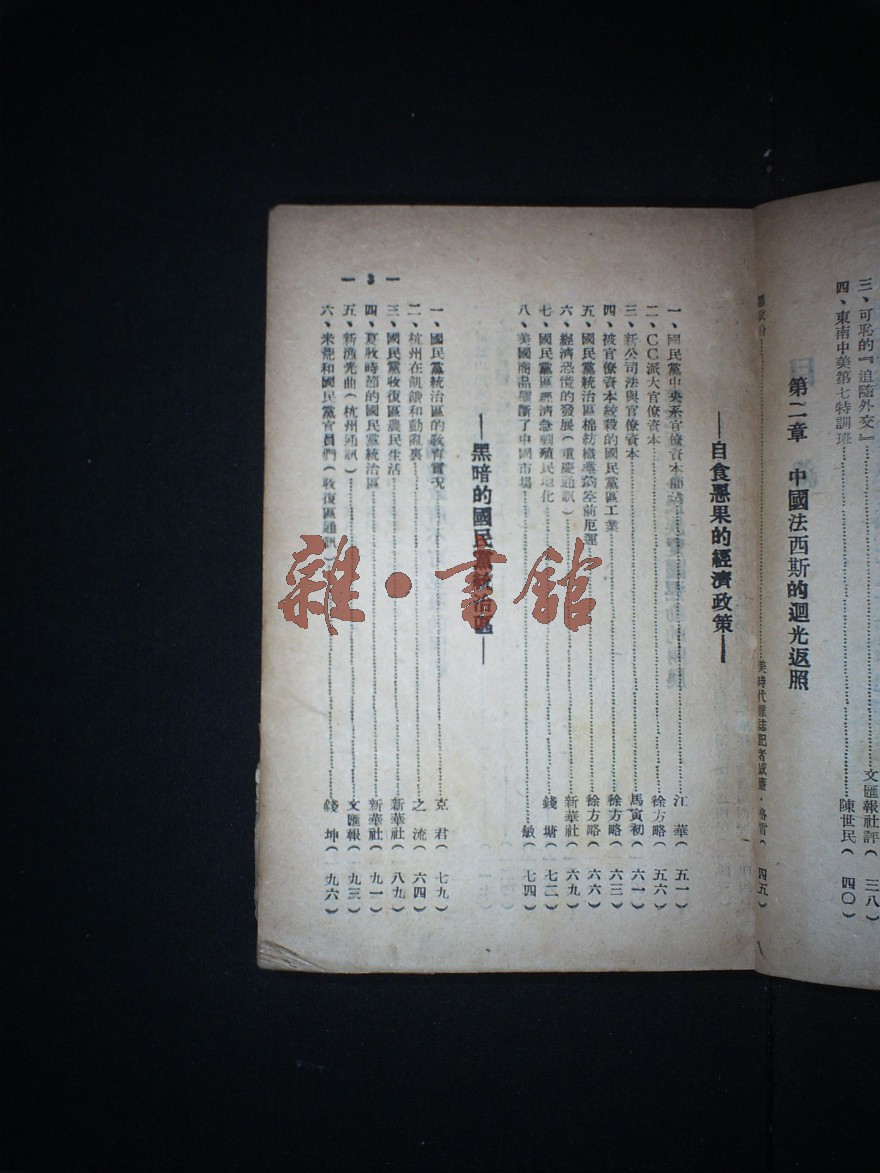 三、可恥的『追隨外交』……文匯報社評（三八）
四、東南中美第七特訓班……陳世民（四〇）
第二章 中國法西斯的迴光返照
……美時代雜誌記者威廉·格雷（四五）
—自食惡果的經濟政策—
一、國民黨中央系官僚資本簡述……江華（五一）
二、CC派大官僚資本……徐方略（五六）
三、新公司法與官僚資本……馬寅初（六一）
四、被官僚資本絞殺的國民黨區工業……徐方略（六三）
五、國民黨統治區棉紡織業的空前厄運……徐方略（六六）
六、經濟恐慌的發展（重慶通訊）……新華社（六九）
七、國民黨區經濟急劇殖民地化……錢塘（七二）
八、美國商品壟斷了中國市場……敏（七四）
—黑暗的國民黨統治區—
一、國民黨統治區的教育實況……克君（七九）
二、杭州在飢餓和動亂裏……之流（六四）
三、國民黨收復區農民生活……新華社（八九）
四、夏收時節的國民黨統治區……新華社（九一）
五、新漁光曲（杭州通訊）……文匯報（九三）
六、米蛀和國民黨官員們（收復區通訊）……錢坤（九六）
— 3 —
雜·書館